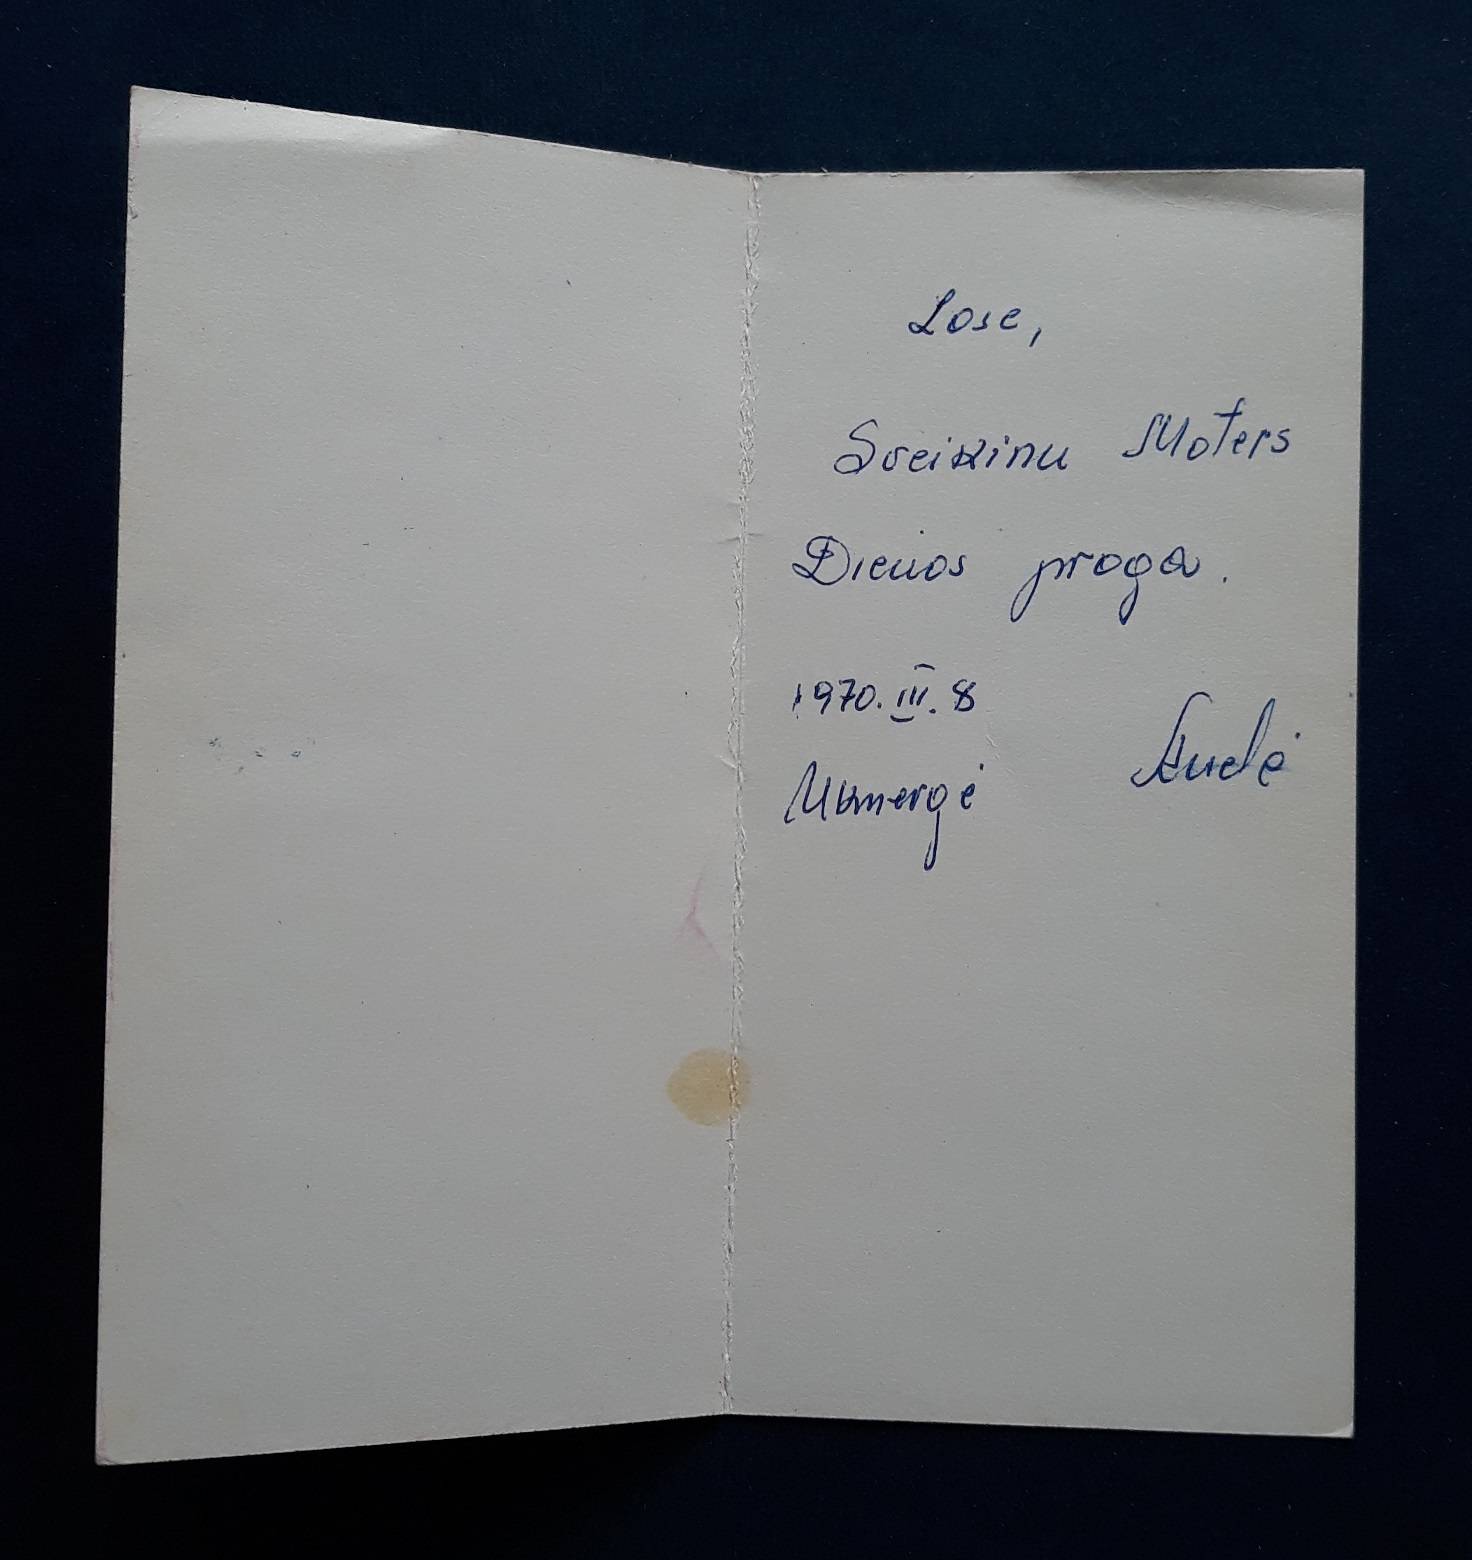 Lose,
Sveikinu Moters
Dienos proga.
1970.III.8
Ukmergė